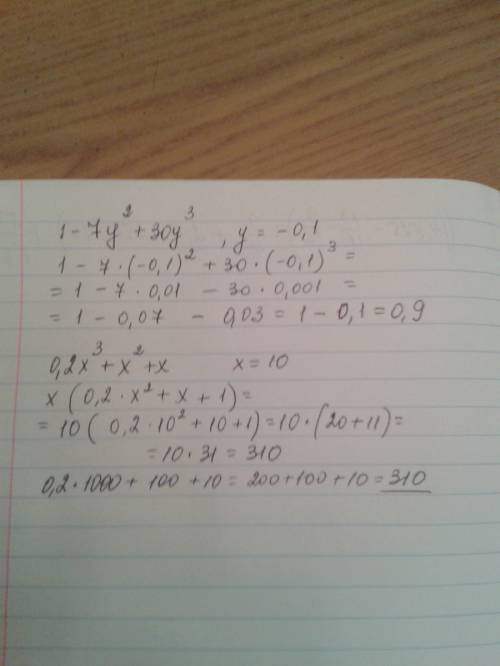 1 - 7y² + 30y³ , y = -0,1
1 - 7·(-0,1)² + 30·(-0,1)³ =
= 1 - 7·0,01 - 30·0,001 =
= 1 - 0,07 - 0,03 = 1 - 0,1 = 0,9
0,2x³ + x² + x x = 10
x (0,2·x² + x + 1) =
= 10 ( 0,2·10² + 10 + 1) = 10·(20 + 11) =
= 10·31 = 310
0,2·1000 + 100 + 10 = 200 + 100 + 10 = 310